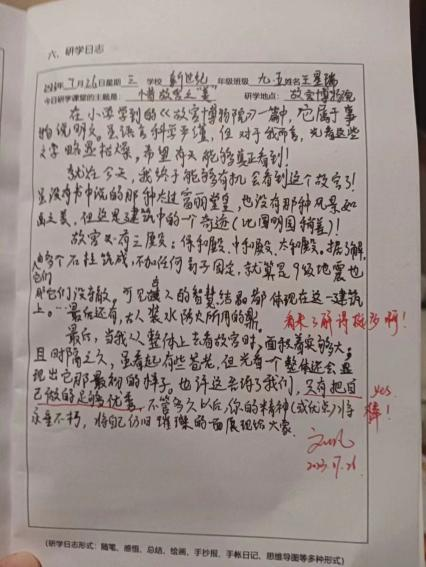 六、研学日志
2023年7月26日星期三 学校 新世纪 年级班级 九.五 姓名 王星瑞
今日研学课堂的主题是: 个普故宫之"美" 研学地点: 故宫博物院
在小学学到的《故宫博物院》一篇中,它属于事
物说明文。虽语言科学严谨,但对于我而言,光看这些
文字略显枯燥,希望有天能够真正看到!
就在今天,我终于能够有机会看到这个故宫了!
虽没有书中说的那种太过富丽堂皇,也没有那种风景如
画之美,但这是建筑中的一个奇迹(比圆明园稍差)!
故宫又有三殿:保和殿、中和殿、太和殿。据了解,
它们由多个石柱筑成,不加任何钉子固定,就算是9级地震也
把它们没辙。可见古人的智慧结晶都体现在这一建筑
上。最后还有,古人装水防火所用的鼎。
看来了解得挺多啊!
最后,当我从整体上去看故宫时,面积着实够大,
且时隔之久,虽看起有些苍老,但光看一个整体还会显
现出它那最初的样子。也许这告诉了我们,只有把自
己做的足够优秀,不管多久以后,你的精神(或优点)将
永垂不朽,将自己仍旧璀璨的一面展现给大家。
yes.
棒!
2023.7.26
(研学日志形式:随笔、感悟、总结、绘画、手抄报、手帐日记、思维导图等多种形式)